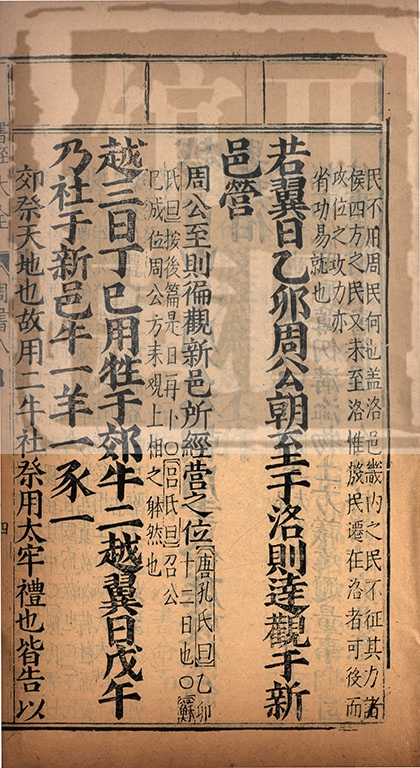 民不用周民何也蓋洛邑畿内之民不征其力諸
侯四方之民又未至洛惟殷民遷在洛者可役而
攻位之攻力亦
省功易就也
若翼日乙卯周公朝至于洛則達觀于新
邑營
周公至則徧觀新邑所經營之位
唐孔氏曰乙卯
十二日也○蘇
氏曰按後篇是日再卜○呂氏曰召公
已成位周公方来觀上相之躰然也
越三日丁巳用牲于郊牛二越翼日戊午
乃社于新邑牛一羊一豕一
郊祭天地也故用二牛社祭用太牢禮也皆告以
四